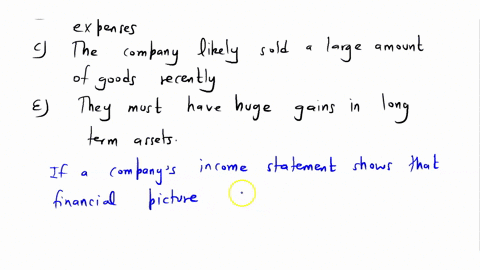 expenses
C) The company likely sold a large amount
of goods recently
E) They must have huge gains in long
term assets.
If a company's income statement shows that
financial picture